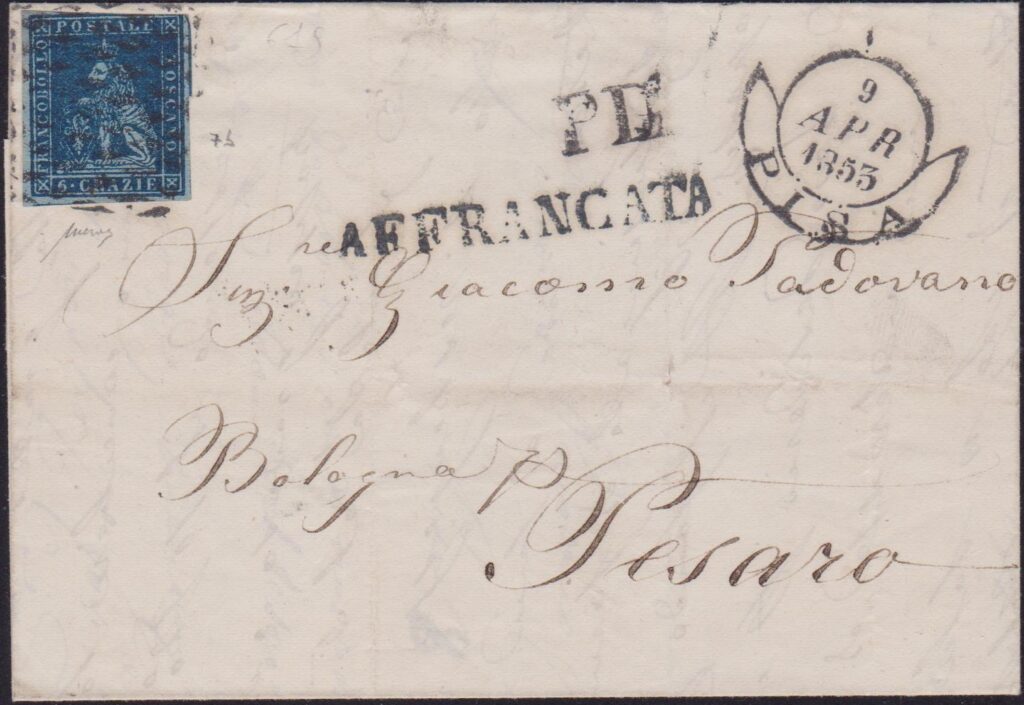 POSTALE
FRANCOBOLLO
TOSCANO
6 · CRAZIE
7b
PD
AFFRANCATA
9
APR
1853
PISA
Sig.re Giacomo Padovano
Bologna p
Pesaro